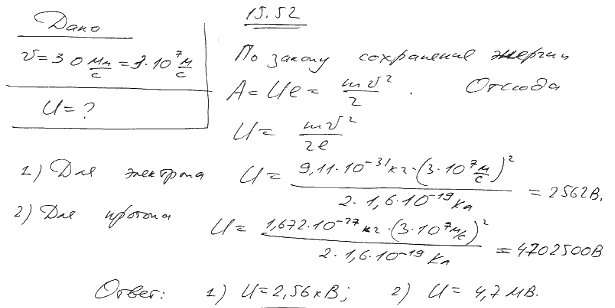 15.52
Дано
v = 30 Мм/с = 3·10⁷ м/с
U = ?
По закону сохранения энергии
A = Ue = mv²/2 . Отсюда
U = mv²/2e
1) Для электрона U = 9,11·10⁻³¹ кг·(3·10⁷ м/с)² / 2·1,6·10⁻¹⁹ Кл = 2562В.
2) Для протона U = 1,672·10⁻²⁷ кг·(3·10⁷ м/с)² / 2·1,6·10⁻¹⁹ Кл = 4702500В
Ответ: 1) U = 2,56 кВ; 2) U = 4,7 МВ.